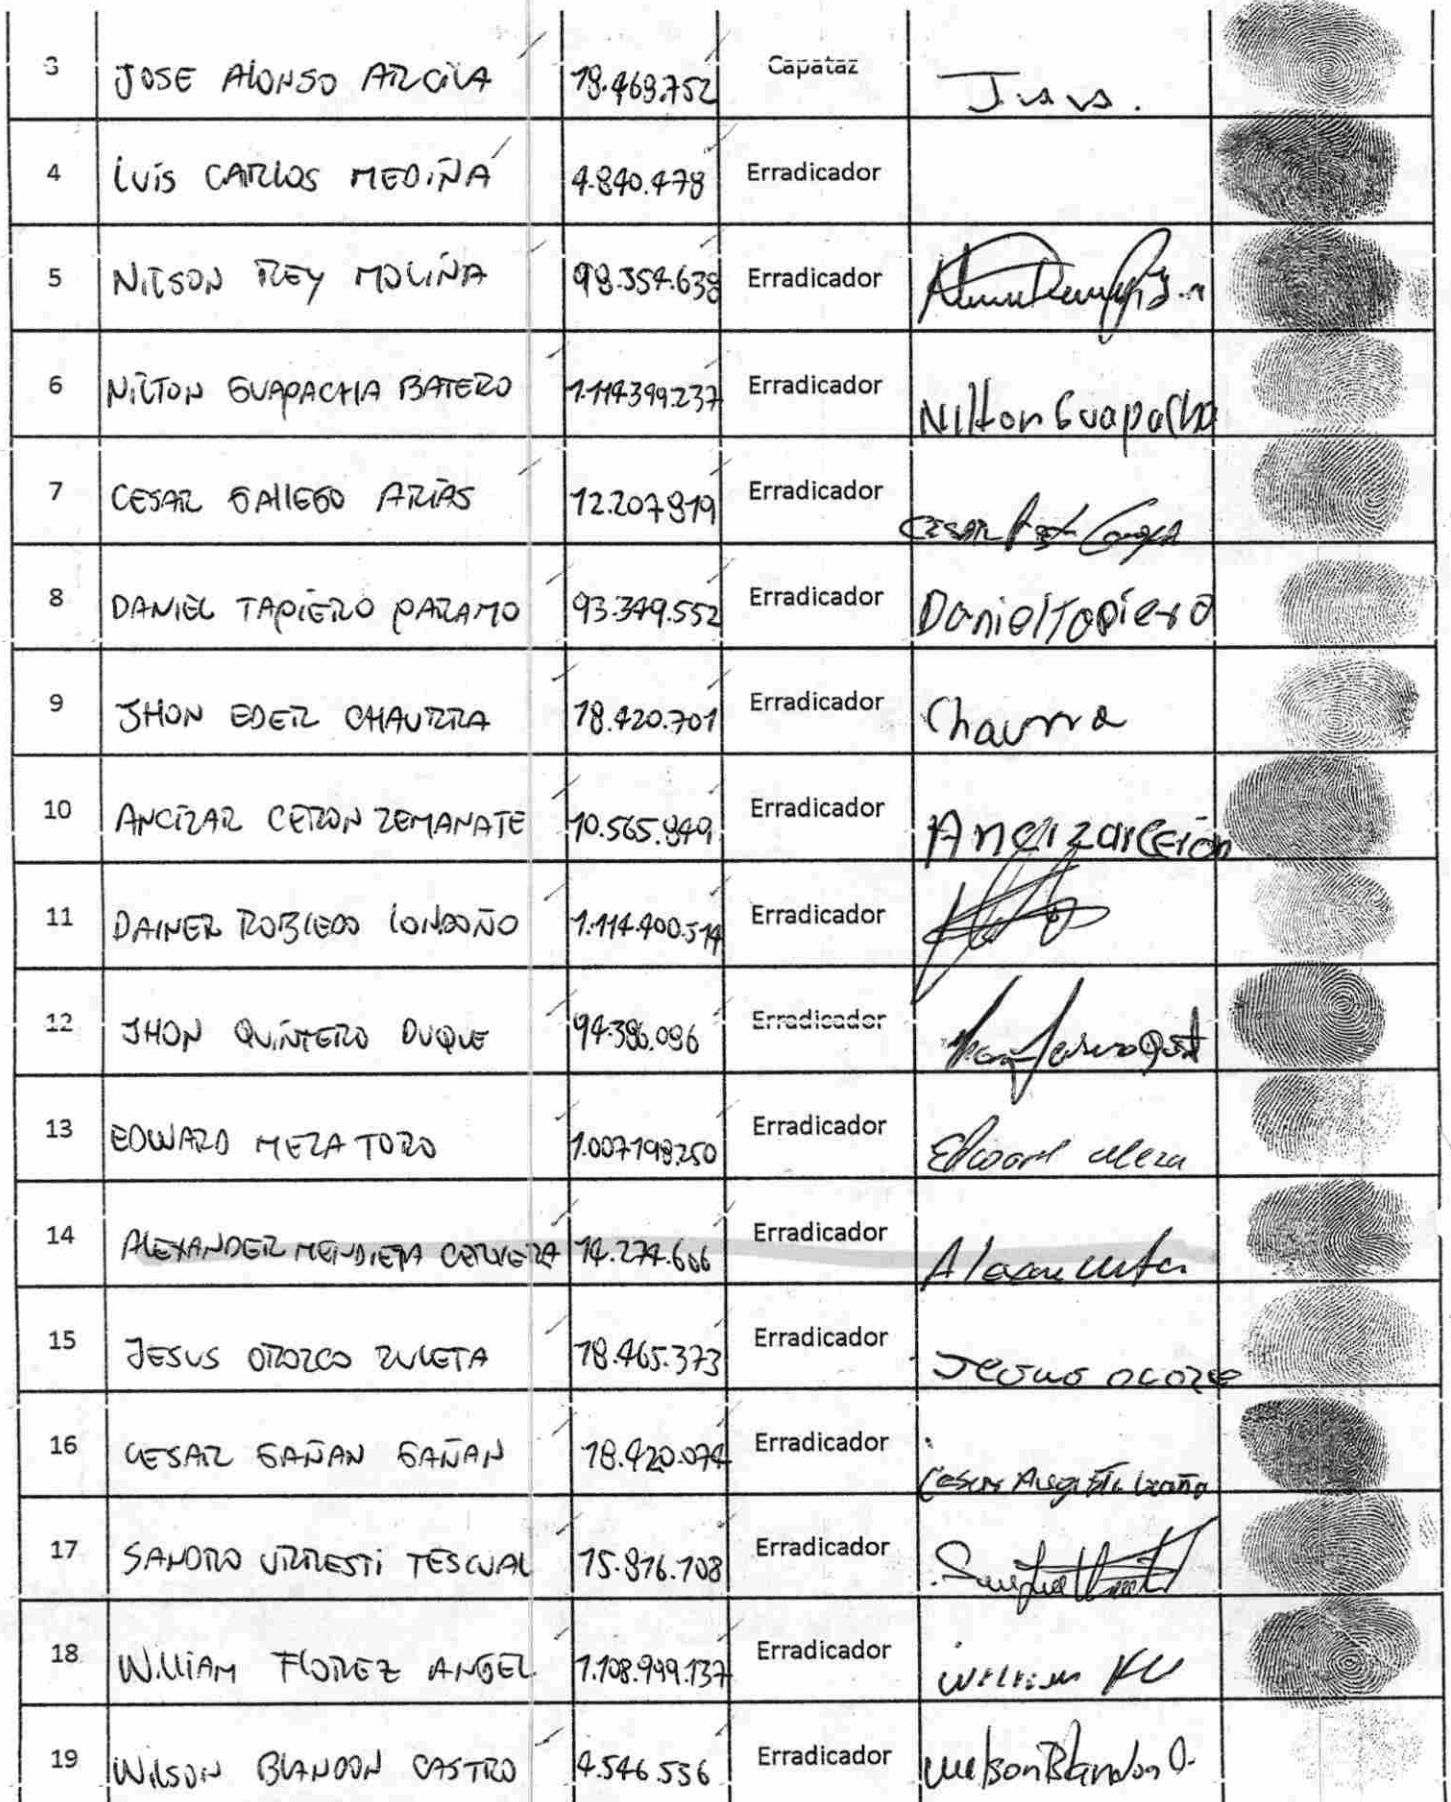 3 JOSE ALONSO ARCILA 18.469.752 Capataz
4 LUIS CARLOS MEDINA 4.840.478 Erradicador
5 NILSON REY MOLINA 98.354.638 Erradicador
6 NILTON GUAPACHA BATERO 1.114.399.237 Erradicador Nilton Guapacha
7 CESAR GALLEGO ARIAS 12.207.819 Erradicador CESAR
8 DANIEL TAPIERO PARAMO 93.349.552 Erradicador Daniel Tapiero
9 JHON EDER CHAURRA 18.420.701 Erradicador Chaurra
10 ANCIZAR CERON ZEMANATE 10.565.849 Erradicador Ancizar Ceron
11 DAINER ROBLEDO LONDOÑO 1.114.400.514 Erradicador
12 JHON QUINTERO DUQUE 94.386.086 Erradicador
13 EDWARD MEZA TORO 1.007.198.250 Erradicador Edwart Meza
14 ALEXANDER MENDIETA CERVERA 14.274.606 Erradicador
15 JESUS OROZCO ZULETA 18.465.373 Erradicador Jesus
16 CESAR GAÑAN GAÑAN 18.420.074 Erradicador
17 SANDRO URRESTI TESCUAL 15.816.108 Erradicador
18 WILLIAM FLOREZ ANGEL 1.108.999.137 Erradicador
19 WILSON BLANDON CASTRO 4.546.556 Erradicador Wilson Blandon